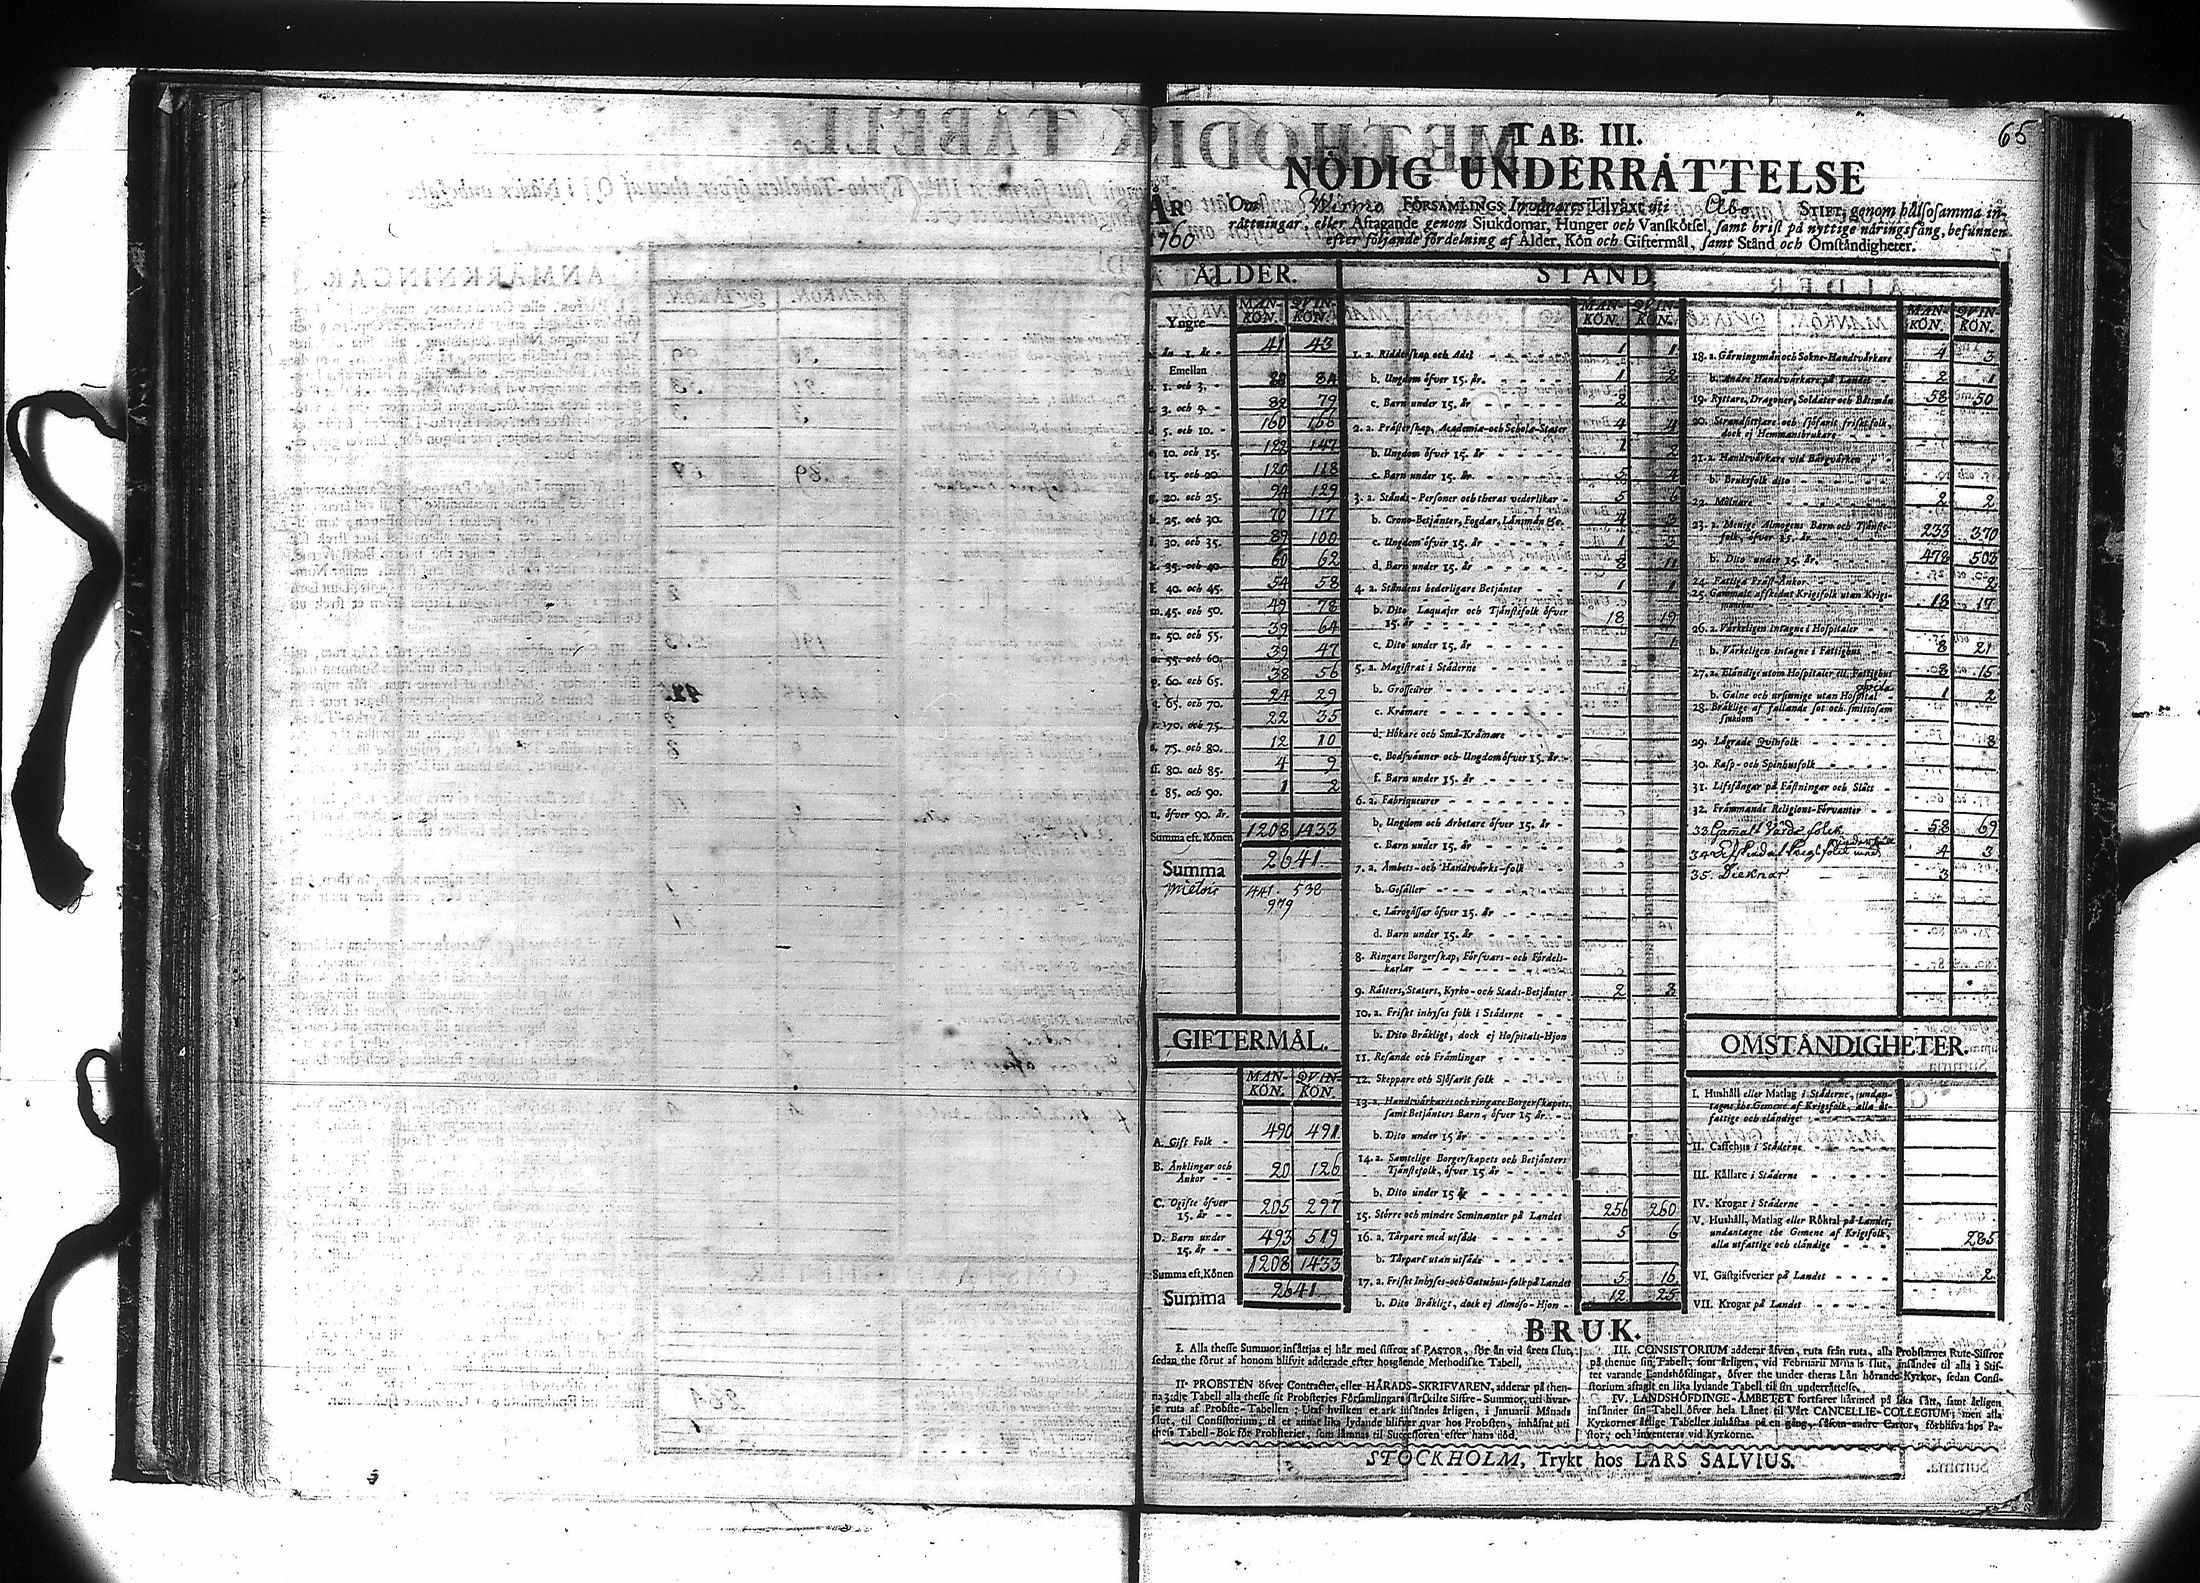 65
TAB. III.
NÖDIG UNDERRÄTTELSE
ÅR 1760 Om Wirmo FÖRSAMLINGS Invånares Tilväxt uti Åbo STIFT, genom hälsosamma in-
rättningar, eller Aftagande genom Sjukdomar, Hunger och Vanskötsel, samt brist på nyttige näringsfång, befunnen
efter följande fördelning af Ålder, Kön och Giftermål, samt Stånd och Omständigheter.
ÅLDER.
MAN-KÖN. QVIN-KÖN.
Yngre
a. än 1. år - 41 43
Emellan
b. 1. och 3. - 88 84
c. 3. och 5. - 82 79
d. 5. och 10. - 160 166
e. 10. och 15. 122 147
f. 15. och 20. 120 118
g. 20. och 25. 94 129
h. 25. och 30. 70 117
i. 30. och 35. 89 100
k. 35. och 40. 60 62
l. 40. och 45. 54 58
m. 45. och 50. 49 78
n. 50. och 55. 39 64
o. 55. och 60. 39 47
p. 60. och 65. 38 56
q. 65. och 70. 24 29
r. 70. och 75. 22 35
s. 75. och 80. 12 10
ſſ. 80. och 85. 4 9
t. 85. och 90. 1 2
u. öfver 90. år.
Summa eft. Könen 1208 1433
Summa 2641.
441. 538
979
GIFTERMÅL.
MAN-KÖN. QVIN-KÖN.
A. Gift Folk - 490 491
B. Änklingar och
Änkor - - 20 126
C. Ogifte öfver
15. år - - 205 297
D. Barn under
15. år - - 493 519
Summa eft. Könen 1208 1433
Summa 2641
STÅND
MAN-KÖN. QVIN-KÖN.
1. a. Ridderskap och Adel 1 1
b. Ungdom öfver 15. år. 1 2
c. Barn under 15. år 2
2. a. Prästerskap, Academiæ- och Scholæ-Stater 4 4
b. Ungdom öfver 15. år 1 2
c. Barn under 15. år. 5 4
3. a. Stånds-Personer och theras vederlikar - 5 6
b. Crono-Betjänter, Fogdar, Länsmän &c. 4 3
c. Ungdom öfver 15. år 1 3
d. Barn under 15. år 8 11
4. a. Ståndens hederligare Betjänter 1 1
b. Dito Laquajer och Tjänstefolk öfver
15. år 18 19
c. Dito under 15. år 1
5. a. Magistrat i Städerne
b. Grosseurer
c. Krämare
d. Hökare och Små-Krämare
e. Bodsvänner och Ungdom öfver 15. år.
f. Barn under 15. år
6. a. Fabriqueurer
b. Ungdom och Arbetare öfver 15. år
c. Barn under 15. år
7. a. Ämbets- och Handtvärks-folk
b. Gesäller
c. Lärogässar öfver 15. år
d. Barn under 15. år
8. Ringare Borgerskap, Försvars- och Fördels-
karlar
9. Rätters, Staters, Kyrko- och Stads-Betjänter 2 8
10. a. Friskt inhyses folk i Städerne
b. Dito Bräkligt, dock ej Hospitals-Hjon
11. Resande och Främlingar
12. Skeppare och Sjöfarit folk
13. a. Handtvärkares och ringare Borgerskapets,
samt Betjänters Barn, öfver 15 år
b. Dito under 15 år
14. a. Samtelige Borgerskapets och Betjänters
Tjänstefolk, öfver 15 år
b. Dito under 15 år
15. Större och mindre Seminanter på Landet 256 260
16. a. Tårpare med utsäde 5 6
b. Tårpare utan utsäde
17. a. Friskt Inhyses- och Gatuhus-folk på Landet 5 16
b. Dito Bräkligt, dock ej Almoso-Hjon 12 25
MAN-KÖN. QVIN-KÖN.
18. a. Gärningsmän och Sokne-Handtvärkare 4 3
b. Andre Handtvärkare på Landet 2 1
19. Ryttare, Dragoner, Soldater och Båtsmän 58 50
20. Strandsittjare och sjöfarit friskt folk,
dock ej Hemmansbrukare
21. a. Handtvärkare vid Bärgvärken
b. Bruksfolk dito
22. Mölnare 2 2
23. a. Menige Almogens Barn och Tjänste-
folk, öfver 15. år 233 370
b. Dito under 15. år. 478 503
24. Fattiga Präst-Änkor 2
25. Gammalt afskedat Krigsfolk utan Krigs-
manshus 18 17
26. a. Värkeligen intagne i Hospitaler
b. Värkeligen intagne i Fattighus 8 21
27. a. Eländige utom Hospitaler ell. Fattighus 8 15
b. Galne och ursinnige utan Hospital 1 2
28. Bräklige af fallande sot och smittosam
sjukdom
29. Lägrade Qvinfolk 8
30. Rasp- och Spinhusfolk
31. Lifsfångar på Fästningar och Slått
32. Främmande Religions-Förvanter
33. Gamalt 58 69
34. 4 3
35. Dieknar 3
OMSTÄNDIGHETER.
I. Hushåll eller Matlag i Städerne, undan-
tagne the Gemene af Krigsfolk, alla ut-
fattige och eländige
II. Caffehus i Städerne
III. Källare i Städerne
IV. Krogar i Städerne
V. Hushåll, Matlag eller Röktal på Landet,
undantagne the Gemene af Krigsfolk,
alla utfattige och eländige 285
VI. Gästgifverier på Landet 2
VII. Krogar på Landet
BRUK.
I. Alla thesse Summor insättjas ej här med siffror af PASTOR, för än vid årets slut,
sedan the förut af honom blifvit adderade efter hosgående Methodiske Tabell,
II. PROBSTEN öfver Contractet, eller HÄRADS-SKRIFVAREN, adderar på then-
na 3:dje Tabell alla thesse sit Probsteries Församlingars särskilte Siffre-Summor, uti hvar-
je ruta af Probste-Tabellen; Utaf hvilken et ark insändes årligen, i Januarii Månads
slut, til Consistorium, så et annat lika lydande blifver qvar hos Probsten, inhäftat uti
thess Tabell-Bok för Probsteriet, som lämnas til Successoren efter hans död.
III. CONSISTORIUM adderar äfven, ruta från ruta, alla Probstarnes Rute-Siffror
på thenne sin Tabell, som årligen, vid Februarii Månads slut, insändes til alla i Stif-
tet varande Landshöfdingar, öfver the under theras Län hörande Kyrkor, sedan Consi-
storium aftagit en lika lydande Tabell til sin underrättelse.
IV. LANDSHÖFDINGE-ÄMBETET fortfarer härmed på lika sätt, samt årligen
insänder sin Tabell öfver hela Länet til Vårt CANCELLIE-COLLEGIUM; men alla
Kyrkornes årlige Tabeller inhäftas på en gång, såsom andre Cartor, förblifva hos Pa-
stor, och inventeras vid Kyrkorne.
STOCKHOLM, Trykt hos LARS SALVIUS.